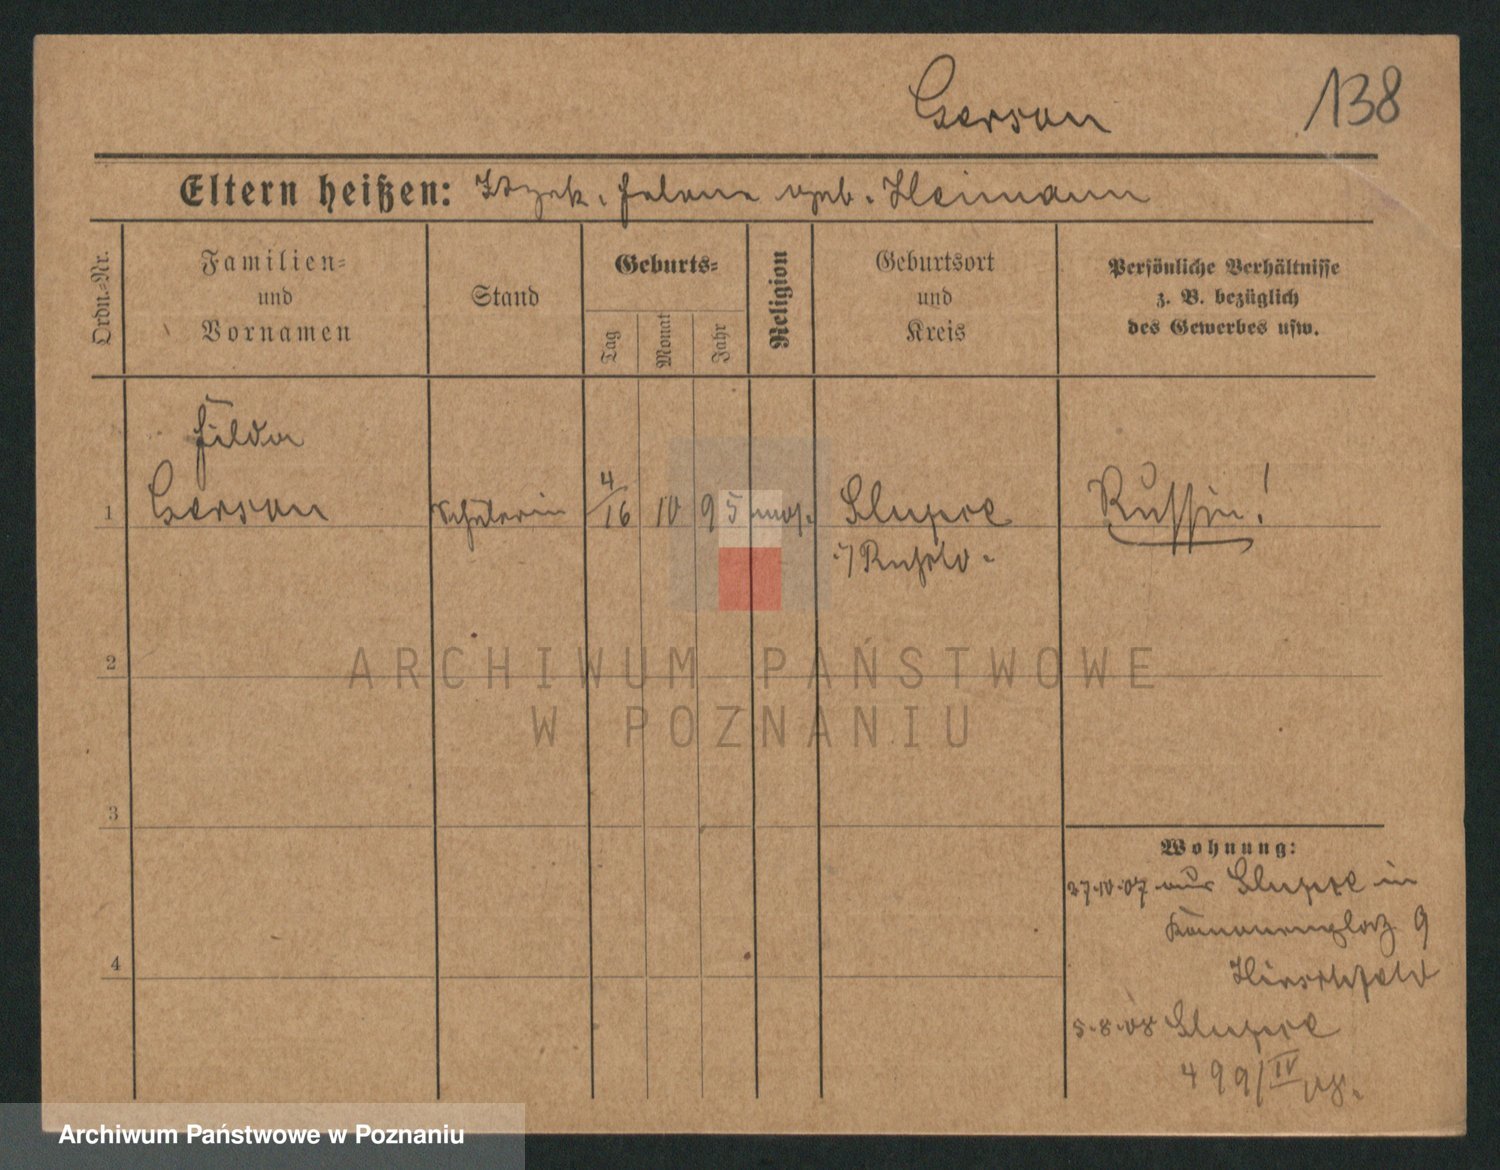 Gerson 138
Eltern heißen: Itzek, Helene geb. Heimann
Ordn.-Nr.
Familien-
und
Vornamen
Stand
Geburts-
Tag
Monat
Jahr
Religion
Geburtsort
und
Kreis
Persönliche Verhältnisse
z. B. bezüglich
des Gewerbes usw.
1
Gerson
Schülerin
4/16 10 95 mos.
Slupce
i/Rußld.
Russin!
2
ARCHIWUM PAŃSTWOWE
W POZNANIU
3
Wohnung:
27.10.07 aus Slupce in
9
Hirschfeld
4
5.8.08 Slupce
499/IV 08.
Archiwum Państwowe w Poznaniu